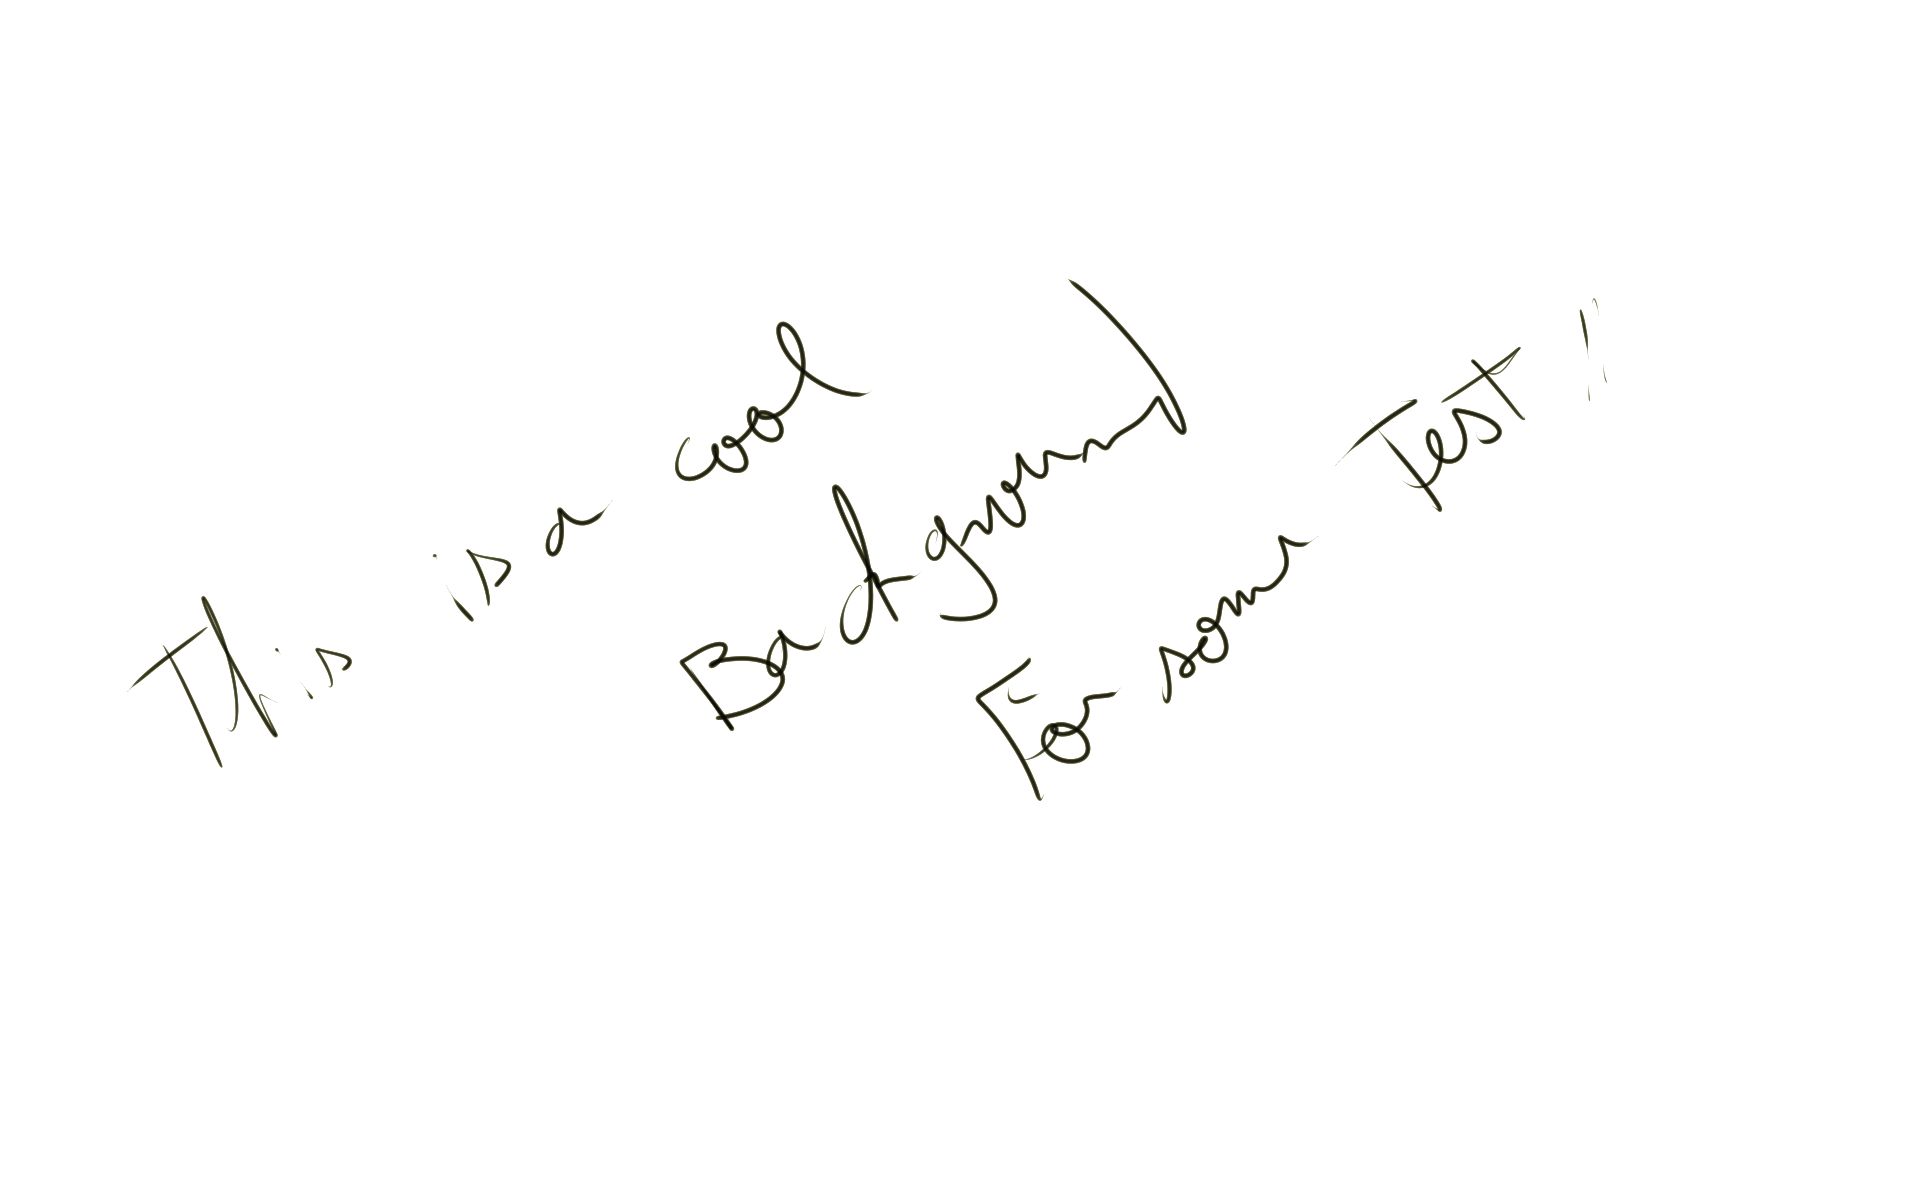 This is a cool
Background
For some Test !!